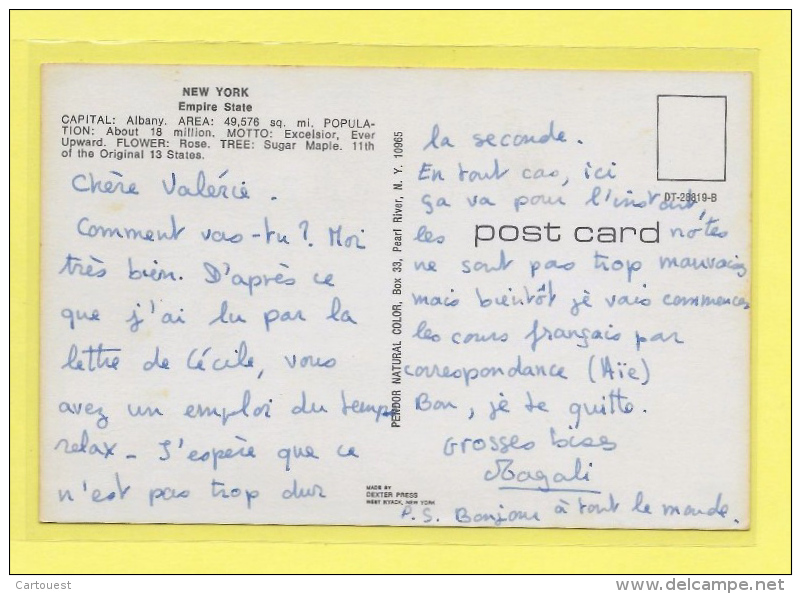 NEW YORK
Empire State
CAPITAL: Albany. AREA: 49,576 sq. mi. POPULA-
TION: About 18 million. MOTTO: Excelsior, Ever
Upward. FLOWER: Rose. TREE: Sugar Maple. 11th
of the Original 13 States.
Chère Valérie.
Comment vas-tu? Moi
très bien. D'après ce
que j'ai lu par la
lettre de Cécile, vous
avez un emploi du temps
relax - J'espère que ce
n'est pas trop dur
PENDOR NATURAL COLOR, Box 33, Pearl River, N. Y. 10965
MADE BY
DEXTER PRESS
WEST NYACK, NEW YORK
DT-28819-B
post card
la seconde.
En tout cas, ici
ça va pour l'instant,
les notes
ne sont pas trop mauvaises
mais bientôt je vais commencer
les cours français par
correspondance (Aïe)
Bon, je te quitte.
Grosses bises
Magali
P.S. Bonjour à tout le monde.
Cartouest
delcampe.net